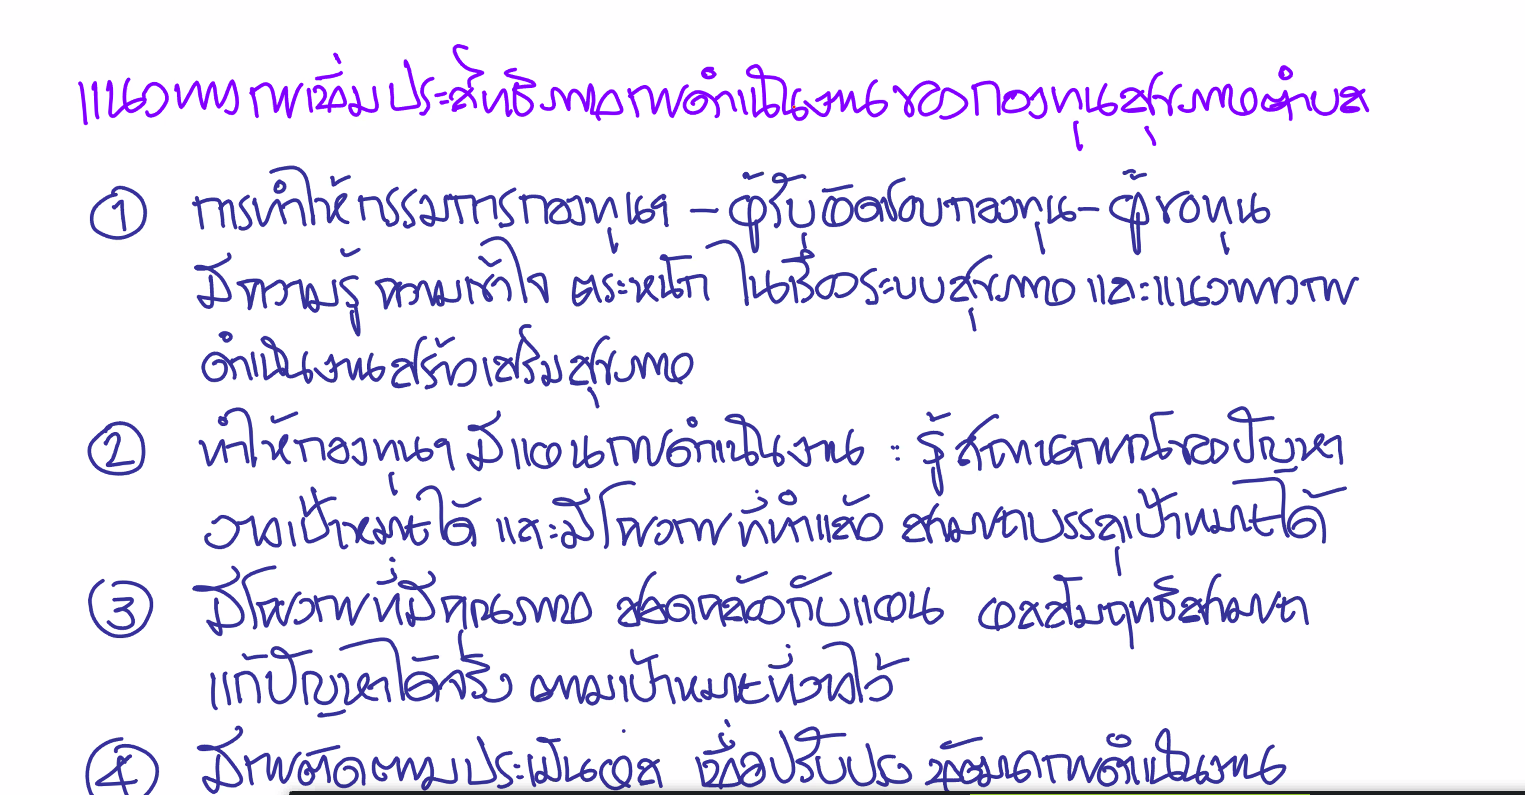 แนวทางการเพิ่มประสิทธิภาพการดำเนินงานของกองทุนสุขภาพตำบล
① การทำให้กรรมการกองทุนฯ - ผู้รับผิดชอบกองทุน - ผู้ขอทุน
มีความรู้ ความเข้าใจ ตระหนัก ในเรื่องระบบสุขภาพ และแนวทางการ
ดำเนินงานสร้างเสริมสุขภาพ
② ทำให้กองทุนฯ มีแผนการดำเนินงาน : รู้สถานการณ์ของปัญหา
วางเป้าหมายได้ และมีโครงการ ที่ทำแล้ว สามารถบรรลุเป้าหมายได้
③ มีโครงการที่มีคุณภาพ สอดคล้องกับแผน ผลสัมฤทธิ์สามารถ
แก้ปัญหาได้จริง ตามเป้าหมายที่วางไว้
④ มีการติดตามประเมินผล เพื่อปรับปรุง พัฒนาการดำเนินงาน